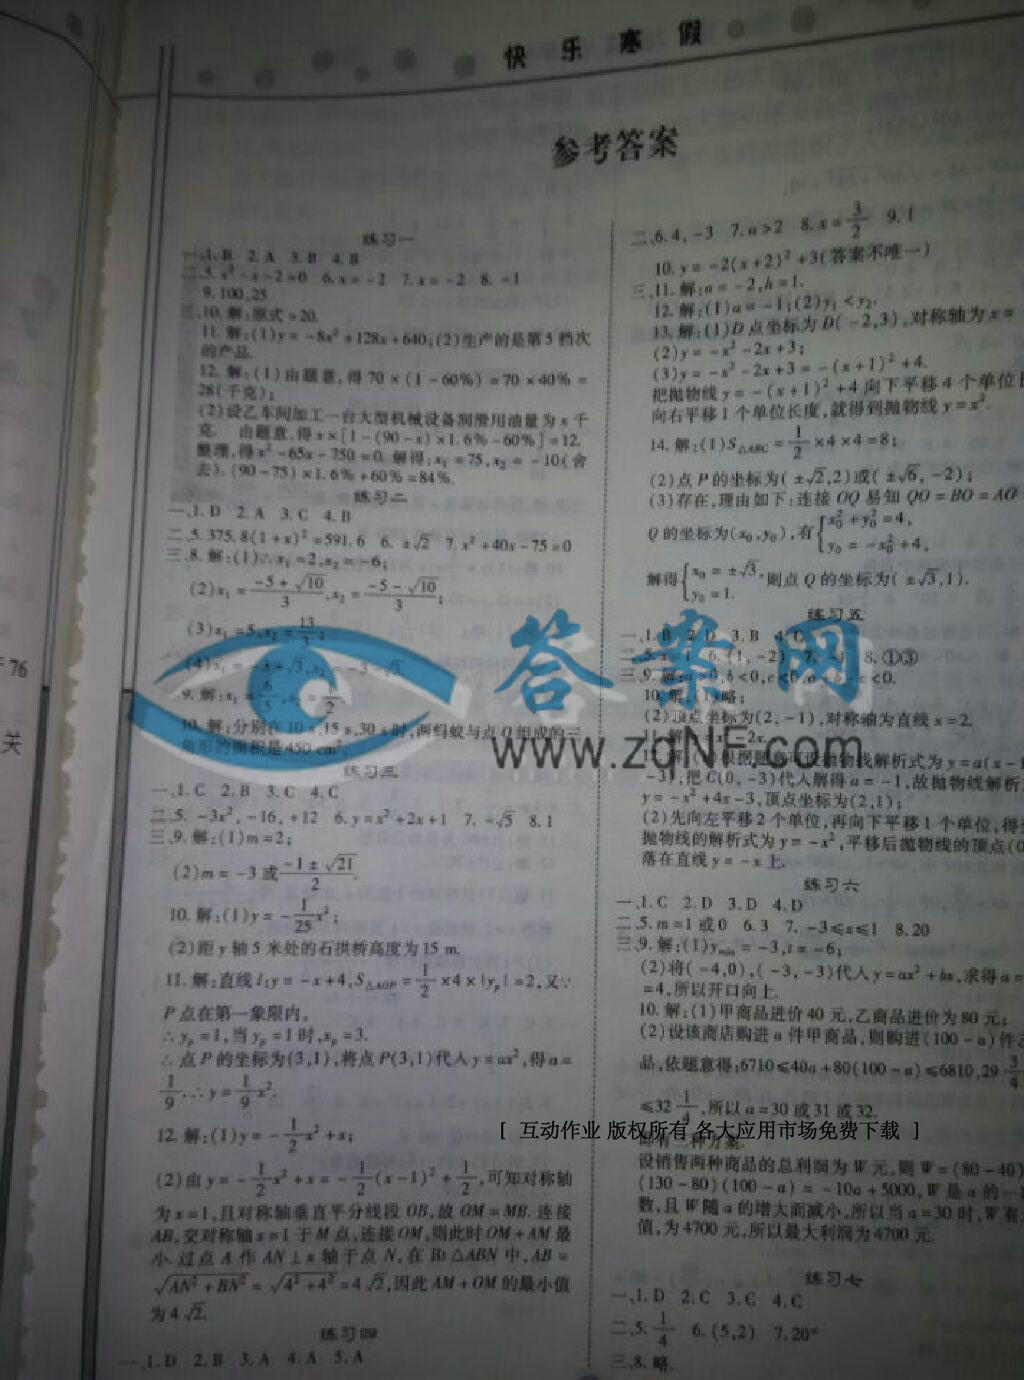 快乐寒假
参考答案
练习一
一、1.B 2.A 3.B 4.B
二、5.x²-x-2=0 6.x=-2 7.x=-2 8.-1
9.100,25
三、10.解:原式=20.
11.解:(1)y=-8x²+128x+640;(2)生产的是第5档次
的产品.
12.解:(1)由题意,得70×(1-60%)=70×40%=
28(千克);
(2)设乙车间加工一台大型机械设备润滑用油量为x千
克. 由题意,得x×[1-(90-x)×1.6%-60%]=12.
整理,得x²-65x-750=0.解得:x₁=75,x₂=-10(舍
去).(90-75)×1.6%+60%=84%.
练习二
一、1.D 2.A 3.C 4.B
二、5.375.8(1+x)²=591.6 6.±√2 7.x²+40x-75=0
三、8.解:(1)∴x₁=2,x₂=-6;
(2)x₁=(-5+√10)/3,x₂=(-5-√10)/3;
(3)x₁=5,x₂=13/3;
(4)x₁=-3+√3,x₂=-3-√3.
9.解:x₁=6/5,x₂=1/2.
10.解:分别在10s,15s,30s时,两蚂蚁与点O组成的三
角形的面积是450cm².
练习三
一、1.C 2.B 3.C 4.C
二、5.-3x²,-16,+12 6.y=x²+2x+1 7.-√5 8.1
三、9.解:(1)m=2;
(2)m=-3或(-1±√21)/2.
10.解:(1)y=-1/25x²;
(2)距y轴5米处的石拱桥高度为15m.
11.解:直线l:y=-x+4,S△AOP=1/2×4×|yₚ|=2,又∵
P点在第一象限内,
∴yₚ=1,当yₚ=1时,xₚ=3.
∴点P的坐标为(3,1),将点P(3,1)代入y=ax²,得a=
1/9.∴y=1/9x².
12.解:(1)y=-1/2x²+x;
(2)由y=-1/2x²+x=-1/2(x-1)²+1/2,可知对称轴
为x=1,且对称轴垂直平分线段OB,故OM=MB.连接
AB,交对称轴x=1于M点,连接OM,则此时OM+AM最
小.过点A作AN⊥x轴于点N,在Rt△ABN中,AB=
√(AN²+BN²)=√(4²+4²)=4√2,因此AM+OM的最小值
为4√2.
练习四
一、1.D 2.B 3.A 4.A 5.A
二、6.4,-3 7.a>2 8.x=3/2 9.1
10.y=-2(x+2)²+3(答案不唯一)
三、11.解:a=-2,h=1.
12.解:(1)a=-1;(2)y₁<y₂.
13.解:(1)D点坐标为D(-2,3),对称轴为x=
(2)y=-x²-2x+3;
(3)y=-x²-2x+3=-(x+1)²+4.
把抛物线y=-(x+1)²+4向下平移4个单位
向右平移1个单位长度,就得到抛物线y=x².
14.解:(1)S△ABC=1/2×4×4=8;
(2)点P的坐标为(±√2,2)或(±√6,-2);
(3)存在,理由如下:连接OQ易知QO=BO=AO
Q的坐标为(x₀,y₀),有{x₀²+y₀²=4, y₀=-x₀²+4,
解得{x₀=±√3, y₀=1. 则点Q的坐标为(±√3,1).
练习五
一、1.B 2.D 3.B 4.C
二、5.x=1 6.(1,-2) 8.①③
三、9.解:a>0,b<0,c<0,
10.解:(1)略;
(2)顶点坐标为(2,-1),对称轴为直线x=2.
11.解:
根据题意可设抛物线解析式为y=a(x-1
-3),把C(0,-3)代入解得a=-1,故抛物线解析
y=-x²+4x-3,顶点坐标为(2,1);
(2)先向左平移2个单位,再向下平移1个单位,得
抛物线的解析式为y=-x²,平移后抛物线的顶点(0
落在直线y=-x上.
练习六
一、1.C 2.D 3.D 4.D
二、5.m=1或0 6.3 7.-3≤x≤1 8.20
三、9.解:(1)yₘᵢₙ=-3,t=-6;
(2)将(-4,0),(-3,-3)代入y=ax²+bx,求得a=
=4,所以开口向上.
10.解:(1)甲商品进价40元,乙商品进价为80元;
(2)设该商店购进a件甲商品,则购进(100-a)件
品,依题意得:6710≤40a+80(100-a)≤6810,29 3/4
≤32 1/4,所以a=30或31或32.
即有三种方案.
设销售两种商品的总利润为W元,则W=(80-40)
(130-80)(100-a)=-10a+5000,W是a的一
数,且W随a的增大而减小,所以当a=30时,W有
值,为4700元,所以最大利润为4700元.
练习七
一、1.D 2.C 3.C 4.C
二、5.1/4 6.(5,2) 7.20°
三、8.略.
76
关
答案网
www.zqNF.com
[ 互动作业 版权所有 各大应用市场免费下载 ]